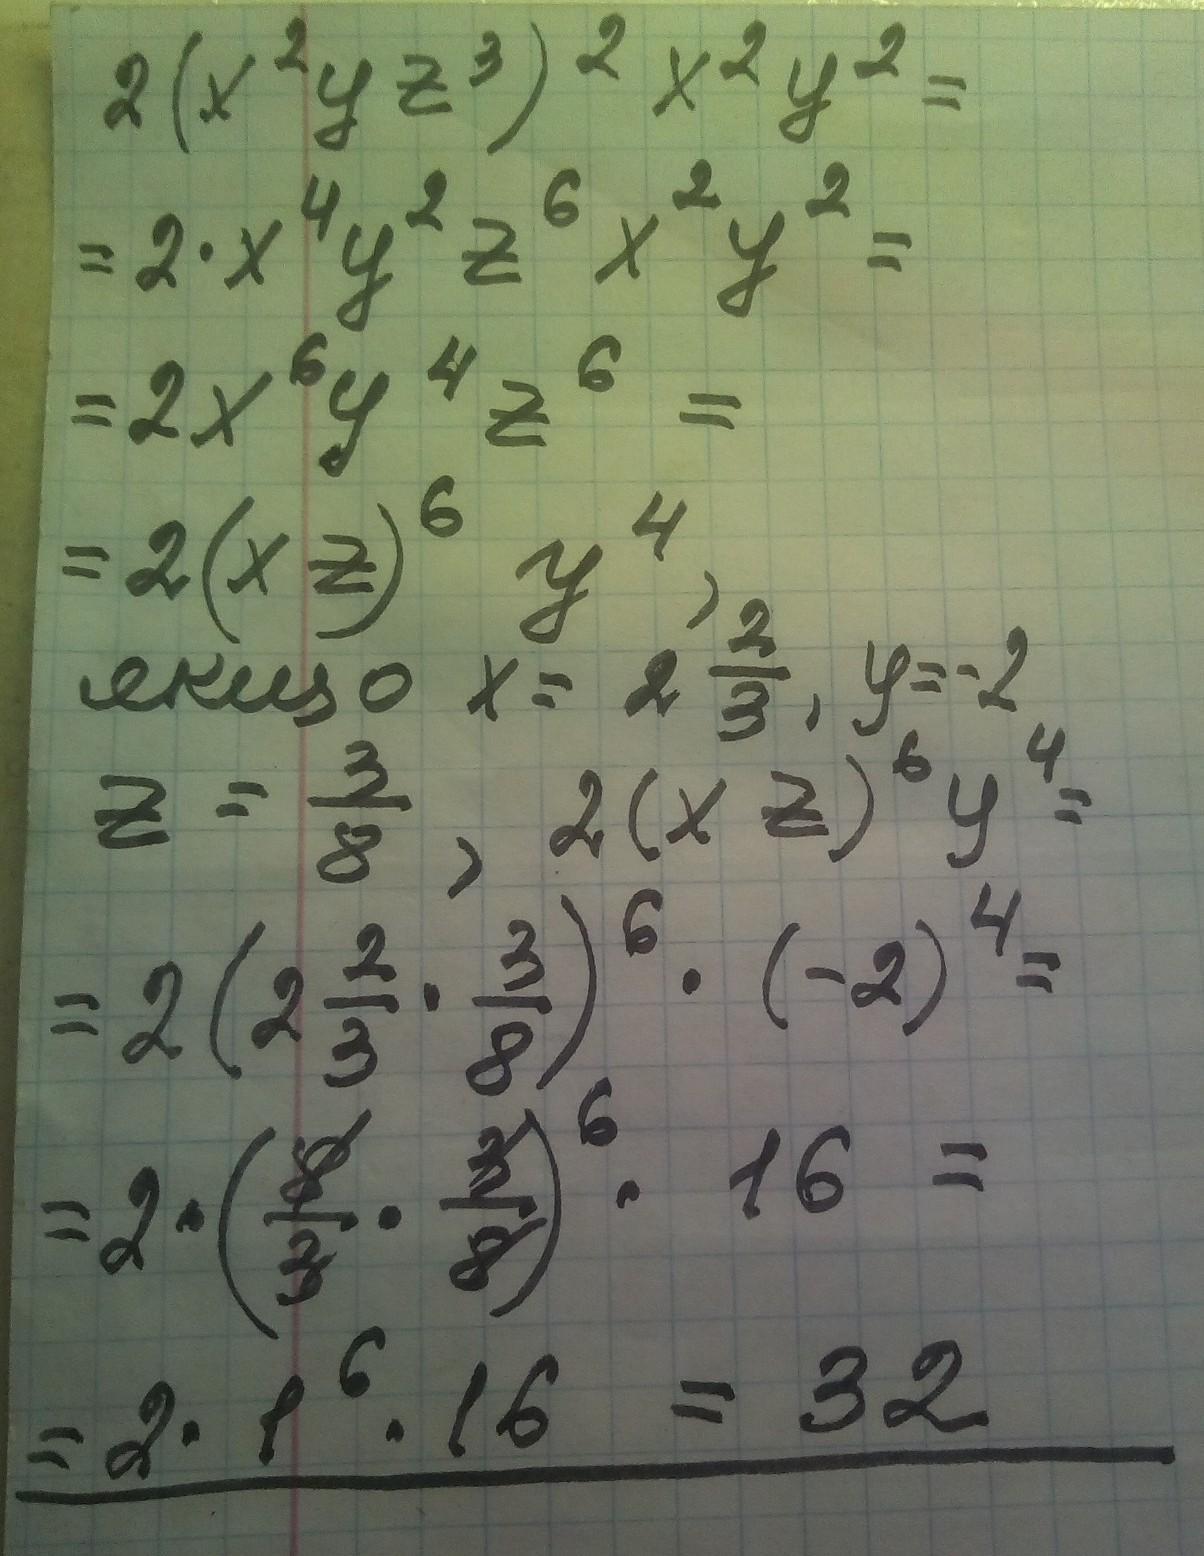 2(x²yz³)²x²y²=
=2·x⁴y²z⁶x²y²=
=2x⁶y⁴z⁶=
=2(xz)⁶y⁴,
якщо x=2 2/3, y=-2
z=3/8, 2(xz)⁶y⁴=
=2(2 2/3·3/8)⁶·(-2)⁴=
=2·(8/3·3/8)⁶·16=
=2·1⁶·16=32